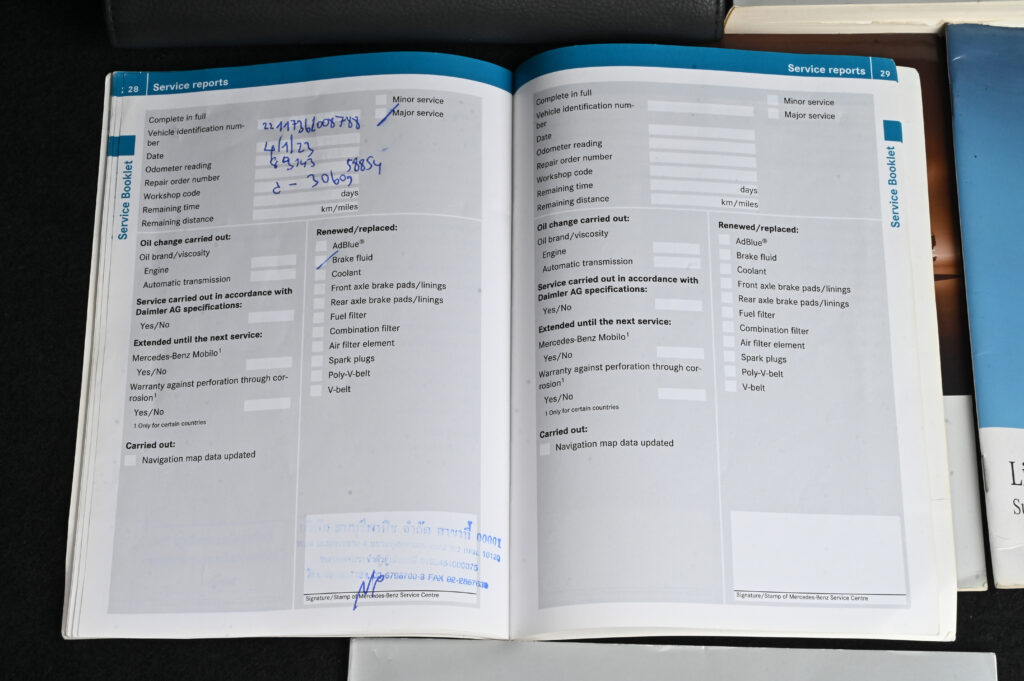 28 Service reports
Complete in full
Minor service
Major service
Vehicle identification num-
ber
Date
4/1/23
Odometer reading
58854
Repair order number
Workshop code
Remaining time
days
Remaining distance
km/miles
Service Booklet
Oil change carried out:
Oil brand/viscosity
Engine
Automatic transmission
Service carried out in accordance with
Daimler AG specifications:
Yes/No
Extended until the next service:
Mercedes-Benz Mobilo¹
Yes/No
Warranty against perforation through cor-
rosion¹
Yes/No
1 Only for certain countries
Carried out:
Navigation map data updated
Renewed/replaced:
AdBlue®
Brake fluid
Coolant
Front axle brake pads/linings
Rear axle brake pads/linings
Fuel filter
Combination filter
Air filter element
Spark plugs
Poly-V-belt
V-belt
จำกัด สาขาที่ 00001
10120
FAX 02-
NP
Signature/Stamp of Mercedes-Benz Service Centre
Service reports 29
Complete in full
Minor service
Major service
Vehicle identification num-
ber
Date
Odometer reading
Repair order number
Workshop code
Remaining time
days
Remaining distance
km/miles
Service Booklet
Oil change carried out:
Oil brand/viscosity
Engine
Automatic transmission
Service carried out in accordance with
Daimler AG specifications:
Yes/No
Extended until the next service:
Mercedes-Benz Mobilo¹
Yes/No
Warranty against perforation through cor-
rosion¹
Yes/No
1 Only for certain countries
Carried out:
Navigation map data updated
Renewed/replaced:
AdBlue®
Brake fluid
Coolant
Front axle brake pads/linings
Rear axle brake pads/linings
Fuel filter
Combination filter
Air filter element
Spark plugs
Poly-V-belt
V-belt
Signature/Stamp of Mercedes-Benz Service Centre